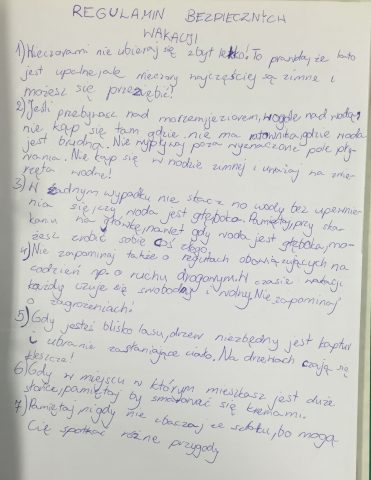 REGULAMIN BEZPIECZNYCH
WAKACJI
1) Wieczorami nie ubieraj się zbyt lekko! To prawda, że lato
jest upalne, ale wieczory najczęściej są zimne i
możesz się przeziębić!
2) Jeśli przebywasz nad morzem, jeziorem, wogóle nad wodą,
nie kąp się tam gdzie nie ma ratownika, gdzie woda
jest brudna. Nie wypływaj poza wyznaczone pole pły-
wania. Nie kąp się w wodzie zimnej i uważaj na zwie-
rzęta wodne!
3) W żadnym wypadku nie skacz do wody bez upewnie-
nia się, czy woda jest głęboka. Pamiętaj, przy ska-
kaniu na główkę, nawet gdy woda jest głęboka, mo-
żesz zrobić sobie coś złego.
4) Nie zapominaj także o regułach obowiązujących na
codzień np. o ruchu drogowym. W czasie wakacji
każdy czuje się swobodny i wolny. Nie zapominaj
o zagrożeniach!
5) Gdy jesteś blisko lasu, drzew niezbędny jest kaptur
i ubranie zasłaniające ciało. Na drzewach czają się
kleszcze!
6) Gdy w miejscu w którym mieszkasz jest duże
słońce, pamiętaj by smarować się kremami.
7) Pamiętaj nigdy nie zbaczaj ze szlaku, bo mogą
Cię spotkać różne przygody